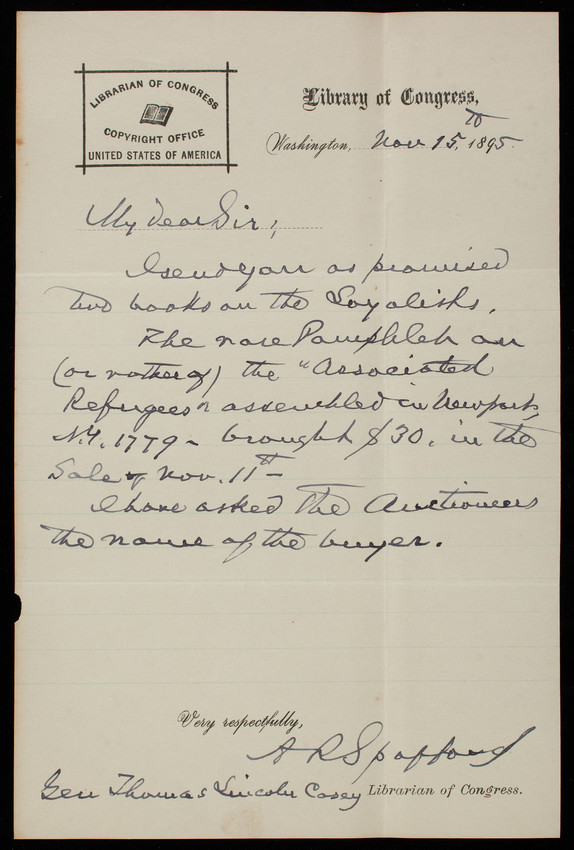 LIBRARIAN OF CONGRESS
COPYRIGHT OFFICE
UNITED STATES OF AMERICA
Library of Congress,
Washington, Nov 15th, 1895.
My dear Sir;
I send you as promised
two books on the Loyalists.
The rare Pamphlet on
(or rather of) the "Associated
Refugees" assembled in Newport,
1779 - brought $30. in the
Sale of Nov. 11th -
I have asked the Auctioneers
the name of the buyer.
Very respectfully,
A R Spofford
Librarian of Congress.
Gen Thomas Lincoln Casey